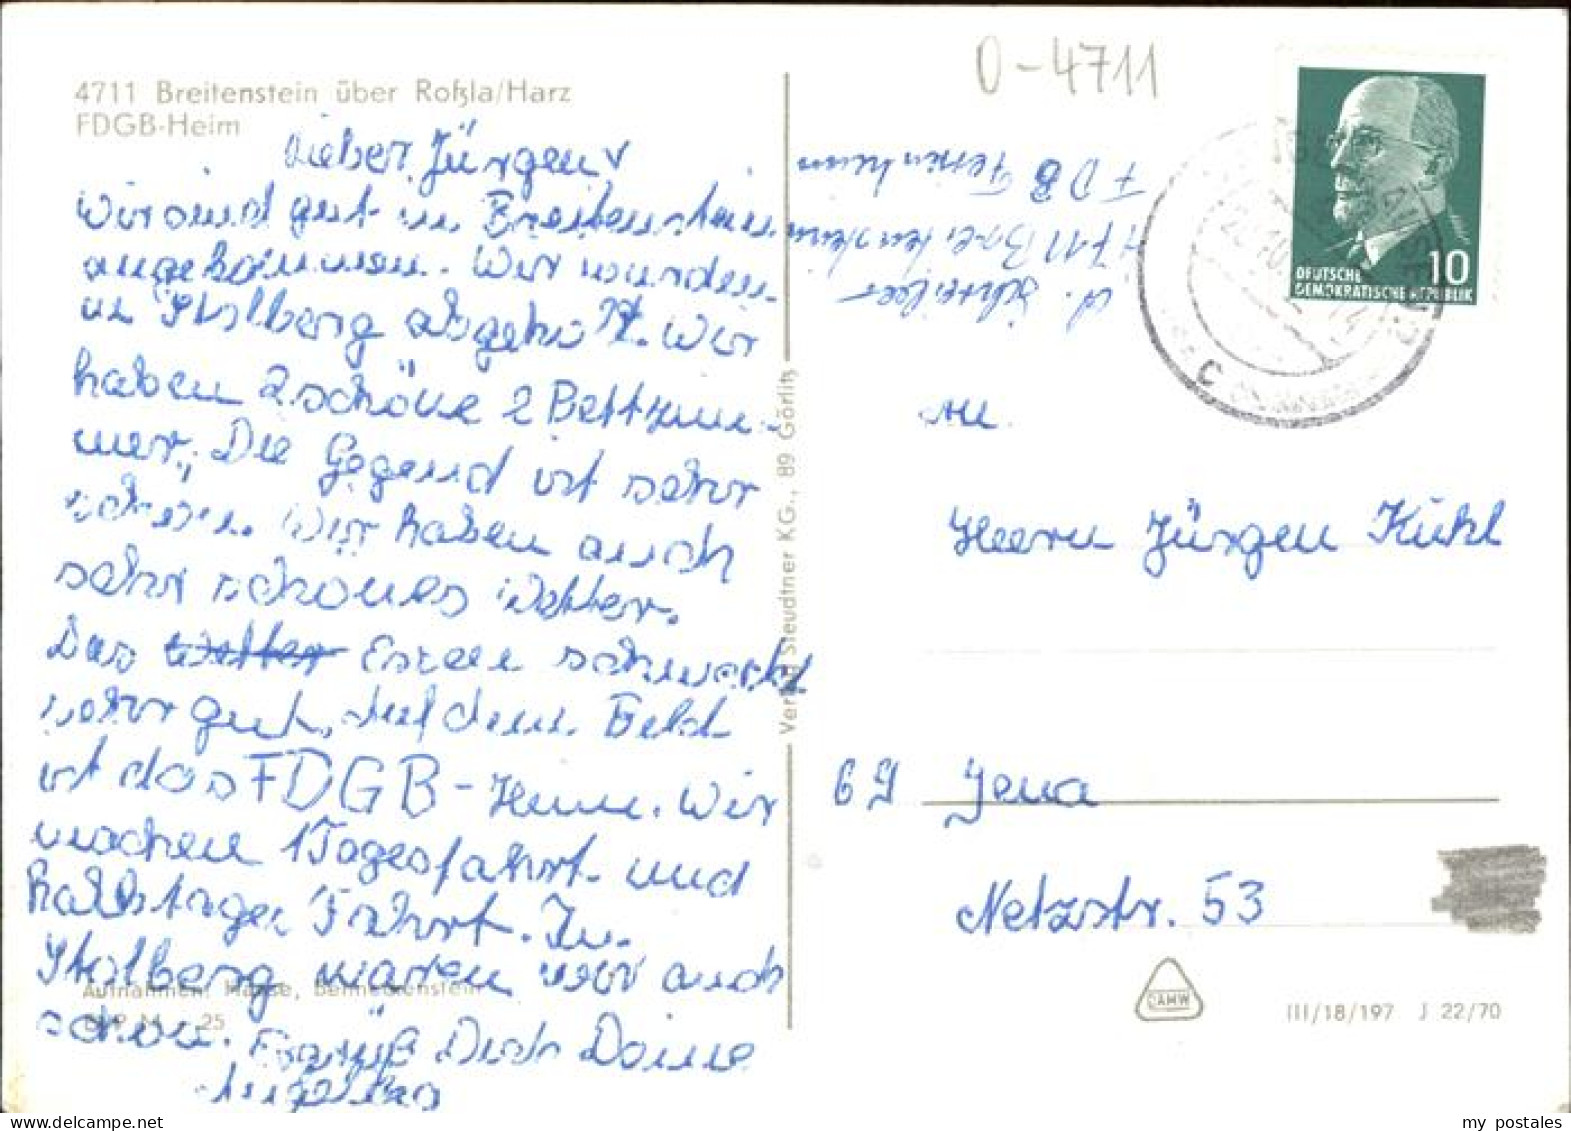 4711 Breitenstein über Roßla/Harz
FDGB-Heim
Lieber Jürgen
Wir sind gut in Breitenstein
angekommen. Wir wurden
in Stolberg abgeholt. Wir
haben 2 schöne 2 Bettzim-
mer. Die Gegend ist sehr
schön. Wir haben auch
sehr schönes Wetter.
Das Wetter Essen schmeckt
sehr gut. Auf dem Feld
ist das FDGB-Heim. Wir
machen 1 Tagesfahrt und
halbtage Fahrt. In
Stolberg waren wir auch
schon. Es grüß Dich Deine
Aufnahmen: Hanse, Benneckenstein
25
Verlag Steudtner KG., 89 Görlitz
O-4711
A. Schreiber
4711 Breitenstein
FDGB Ferienheim
DEUTSCHE
DEMOKRATISCHE REPUBLIK
10
An
Herrn Jürgen Kühl
69 Jena
Netzstr. 53
DAHW
III/18/197 J 22/70
my_postales